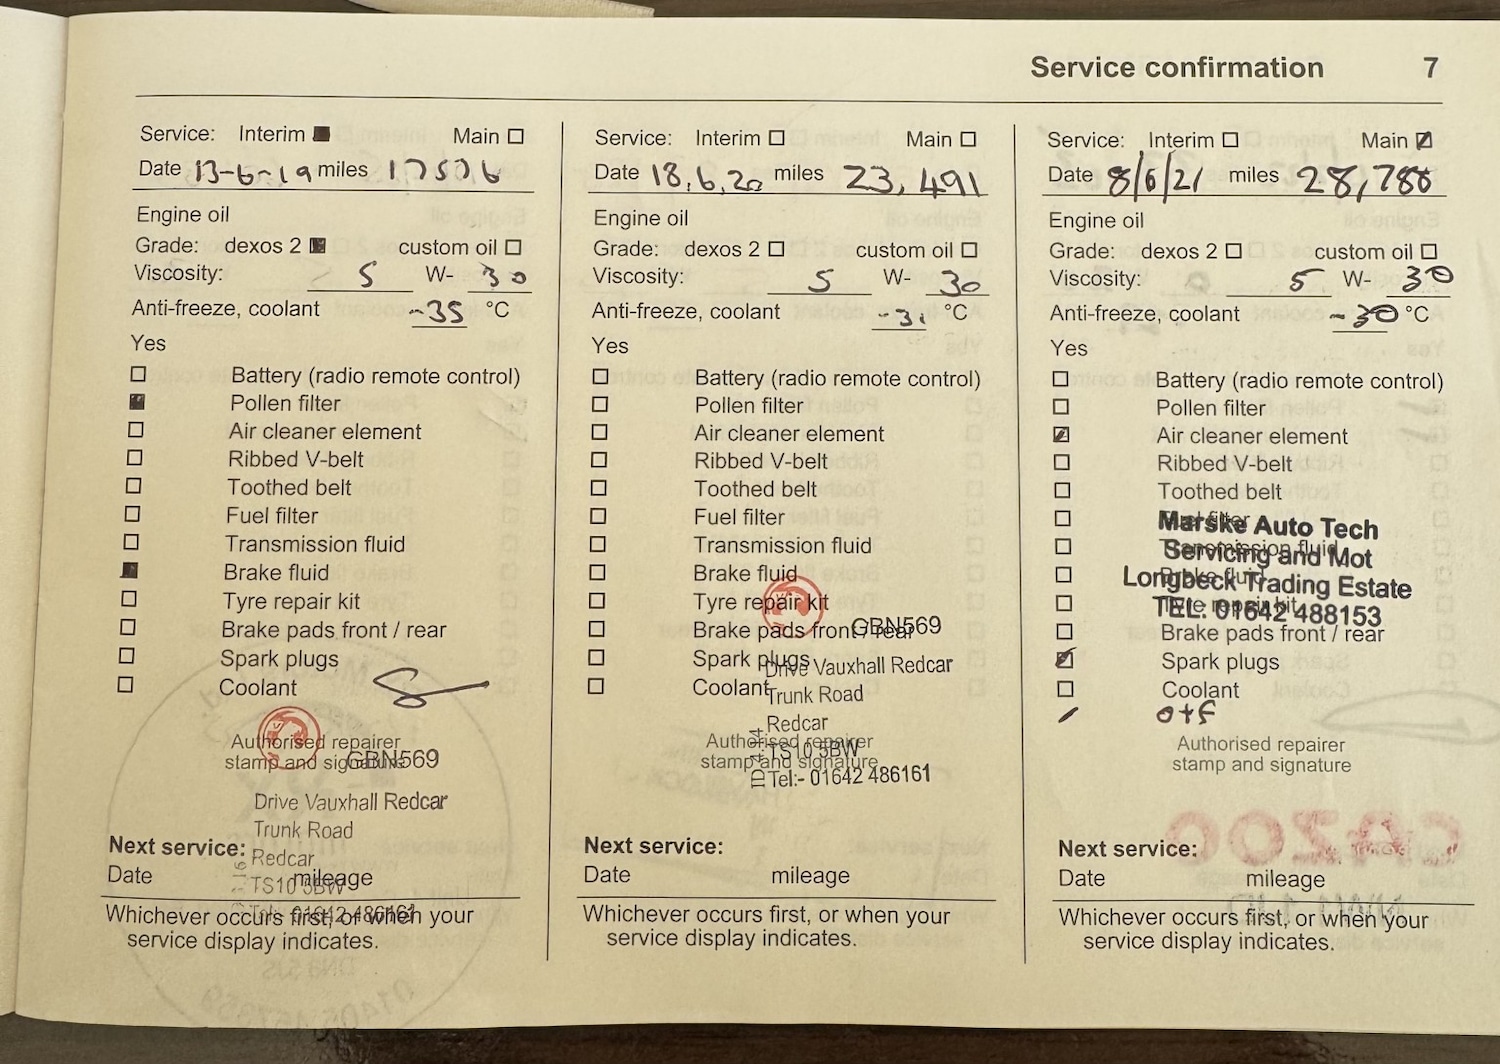 Service confirmation 7
Service: Interim Main
Date 13-6-19 miles 17576
Engine oil
Grade: dexos 2 custom oil
Viscosity: 5 W- 30
Anti-freeze, coolant -35 °C
Yes
Battery (radio remote control)
Pollen filter
Air cleaner element
Ribbed V-belt
Toothed belt
Fuel filter
Transmission fluid
Brake fluid
Tyre repair kit
Brake pads front / rear
Spark plugs
Coolant
Authorised repairer
stamp and signature
GBN569
Drive Vauxhall Redcar
Trunk Road
Redcar
TS10 5BW
Tel:- 01642 486161
Next service:
Date mileage
Whichever occurs first, or when your
service display indicates.
Service: Interim Main
Date 18.6.20 miles 23,491
Engine oil
Grade: dexos 2 custom oil
Viscosity: 5 W- 30
Anti-freeze, coolant -31 °C
Yes
Battery (radio remote control)
Pollen filter
Air cleaner element
Ribbed V-belt
Toothed belt
Fuel filter
Transmission fluid
Brake fluid
Tyre repair kit
Brake pads front / rear
Spark plugs
Coolant
GBN569
Drive Vauxhall Redcar
Trunk Road
Redcar
TS10 5BW
Tel:- 01642 486161
Authorised repairer
stamp and signature
Next service:
Date mileage
Whichever occurs first, or when your
service display indicates.
Service: Interim Main
Date 8/6/21 miles 28,788
Engine oil
Grade: dexos 2 custom oil
Viscosity: 5 W- 30
Anti-freeze, coolant -30 °C
Yes
Battery (radio remote control)
Pollen filter
Air cleaner element
Ribbed V-belt
Toothed belt
Fuel filter
Transmission fluid
Brake fluid
Tyre repair kit
Brake pads front / rear
Spark plugs
Coolant
o+f
Marske Auto Tech
Servicing and Mot
Longbeck Trading Estate
TEL: 01642 488153
Authorised repairer
stamp and signature
Next service:
Date mileage
Whichever occurs first, or when your
service display indicates.